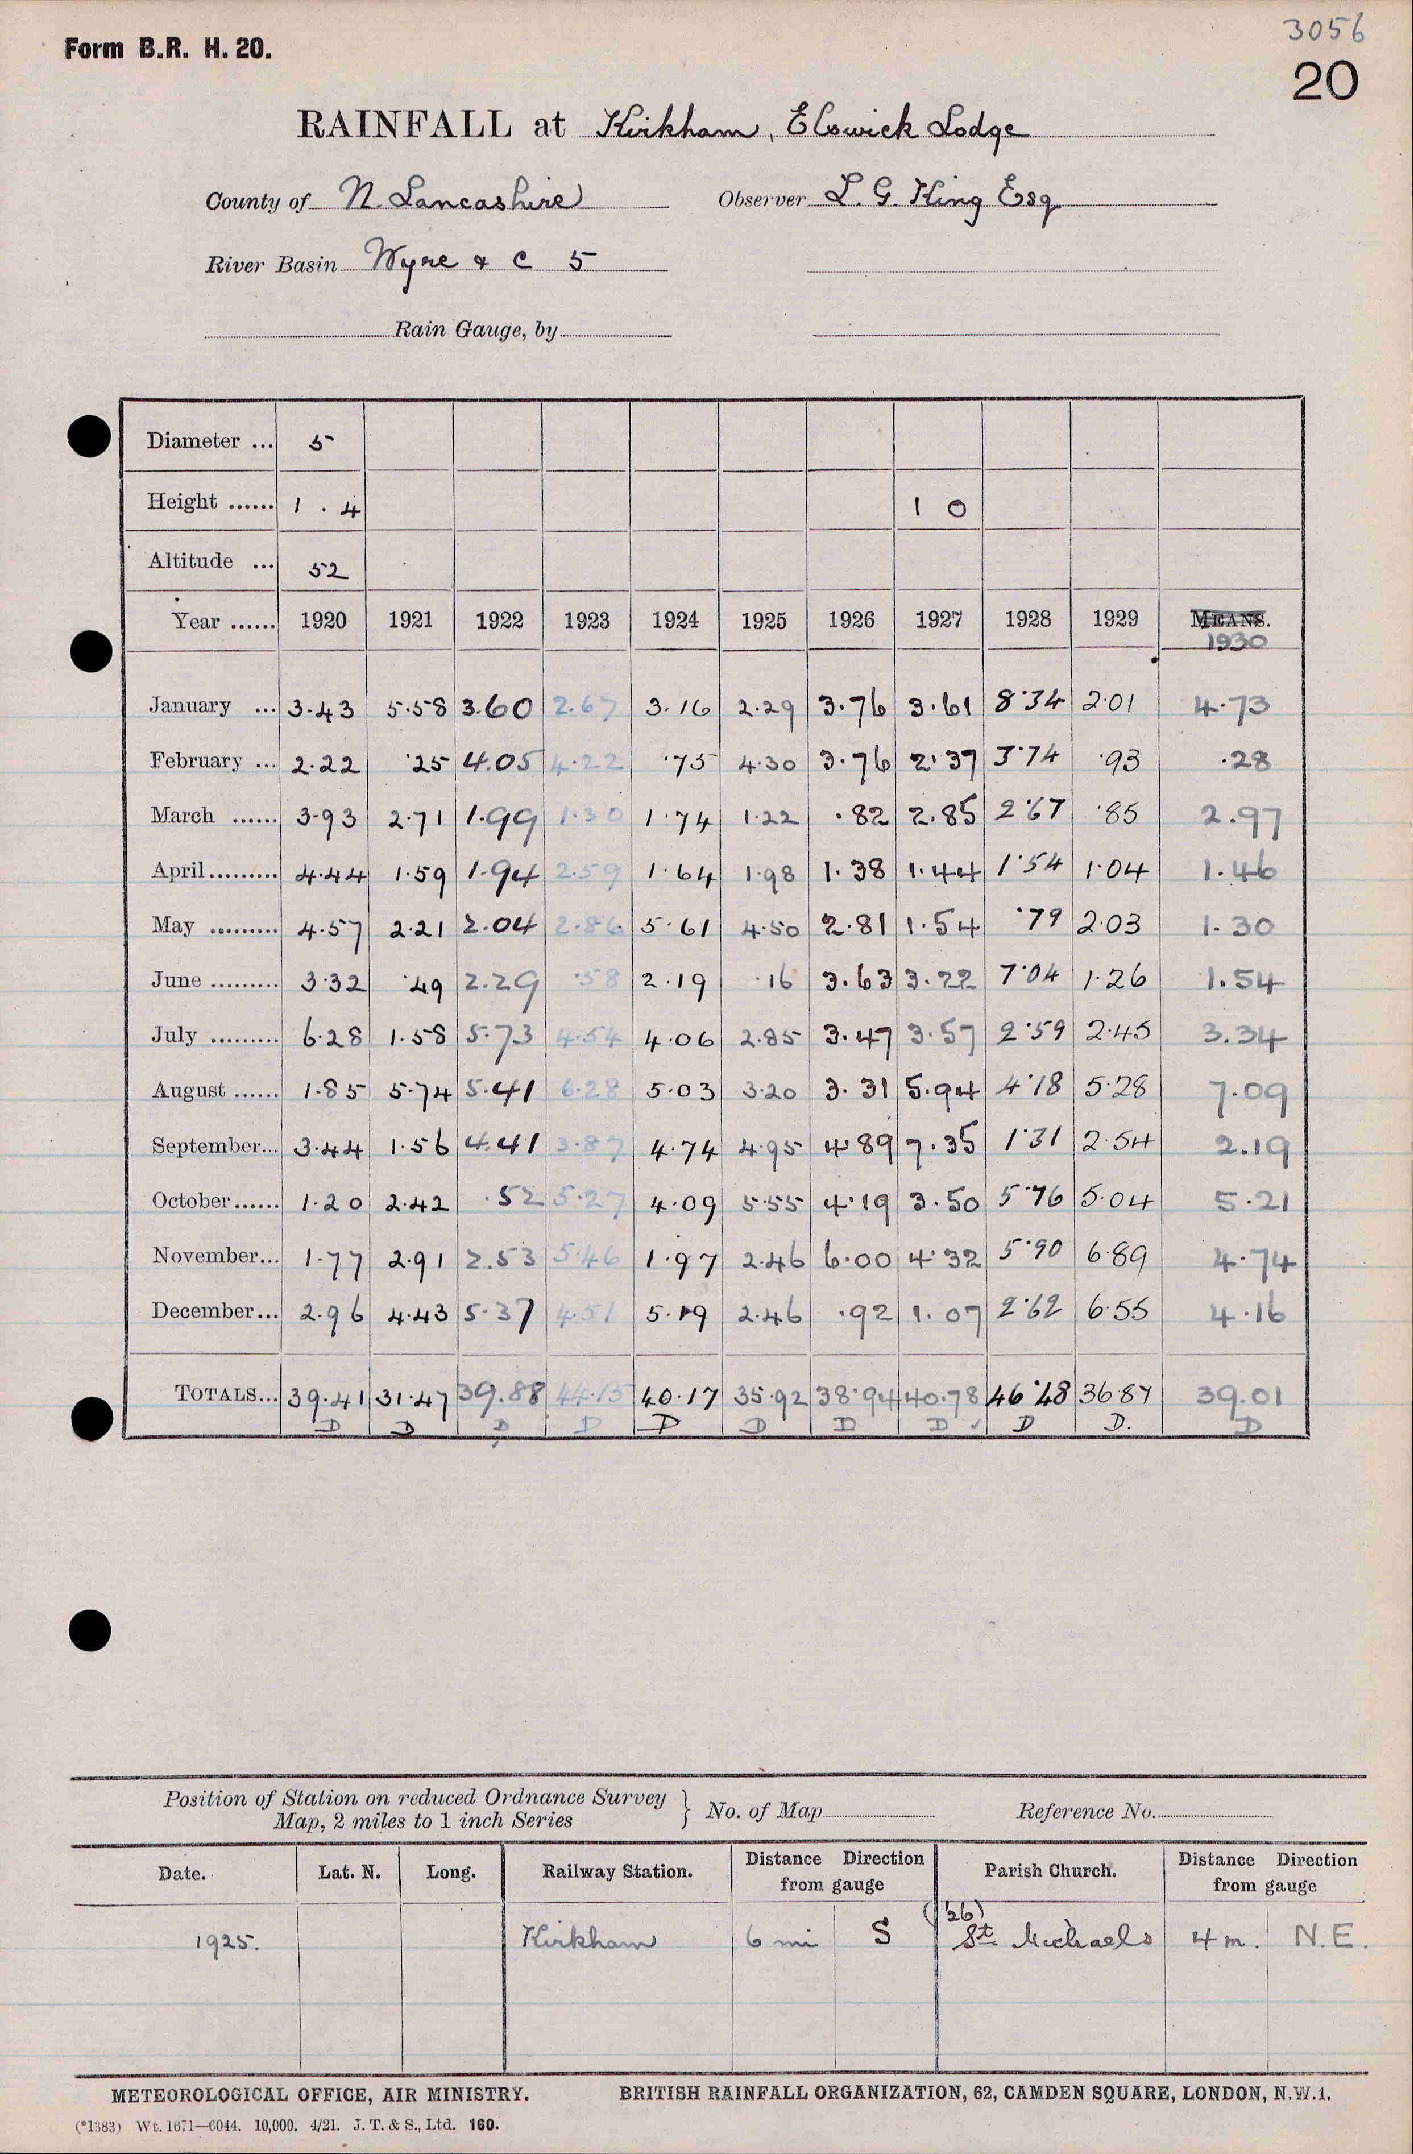 3056
Form B.R. H. 20.
20
RAINFALL at Kirkham, Elswick Lodge
County of N. Lancashire Observer L. G. King Esq
River Basin Wyre & C 5
Rain Gauge, by
Diameter ... 5
Height ...... 1 . 4 1 0
Altitude ... 52
Year ...... 1920 1921 1922 1923 1924 1925 1926 1927 1928 1929 MEANS.
1930
January ... 3.43 5.58 3.60 2.67 3.16 2.29 3.76 3.61 8.34 2.01 4.73
February ... 2.22 .25 4.05 4.22 .75 4.30 3.76 2.37 3.74 .93 .28
March ...... 3.93 2.71 1.99 1.30 1.74 1.22 .82 2.85 2.67 .85 2.97
April......... 4.44 1.59 1.94 2.59 1.64 1.98 1.38 1.44 1.54 1.04 1.46
May ......... 4.57 2.21 2.04 2.86 5.61 4.50 2.81 1.54 .79 2.03 1.30
June ......... 3.32 .49 2.29 .58 2.19 .16 3.63 3.22 7.04 1.26 1.54
July ......... 6.28 1.58 5.73 4.54 4.06 2.85 3.47 3.57 2.59 2.45 3.34
August ...... 1.85 5.74 5.41 6.28 5.03 3.20 3.31 5.94 4.18 5.28 7.09
September... 3.44 1.56 4.41 3.87 4.74 4.95 4.89 7.35 1.31 2.54 2.19
October...... 1.20 2.42 .52 5.27 4.09 5.55 4.19 3.50 5.76 5.04 5.21
November... 1.77 2.91 2.53 5.46 1.97 2.46 6.00 4.32 5.90 6.89 4.74
December... 2.96 4.43 5.37 4.51 5.19 2.46 .92 1.07 2.62 6.55 4.16
TOTALS... 39.41 31.47 39.88 44.15 40.17 35.92 38.94 40.78 46.48 36.87 39.01
D D D D D D D D ✓ D D. D
Position of Station on reduced Ordnance Survey
Map, 2 miles to 1 inch Series } No. of Map Reference No.
Date. Lat. N. Long. Railway Station. Distance Direction from gauge Parish Church. Distance Direction from gauge
('26)
1925. Kirkham 6 mi S St Michaels 4 m. N.E.
METEOROLOGICAL OFFICE, AIR MINISTRY. BRITISH RAINFALL ORGANIZATION, 62, CAMDEN SQUARE, LONDON, N.W.1.
(*1383) Wt. 1671—6044. 10,000. 4/21. J. T. & S., Ltd. 160.